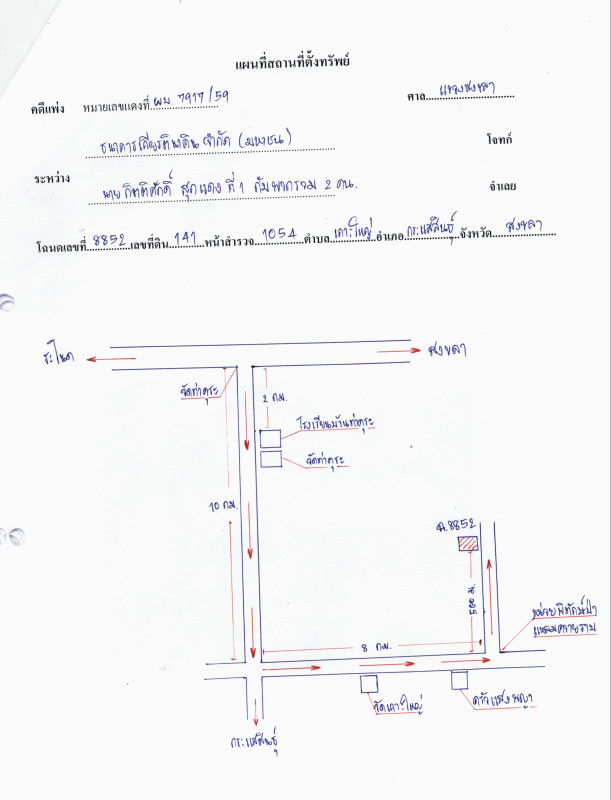 แผนที่สถานที่ตั้งทรัพย์
คดีแพ่ง หมายเลขแดงที่ ผบ. 7917/59 ศาล แขวงสงขลา
ธนาคารเกียรตินาคิน จำกัด (มหาชน) โจทก์
ระหว่าง
นายกิตติศักดิ์ สุกแดง ที่ 1 กับพวกรวม 2 คน. จำเลย
โฉนดเลขที่ 8852 เลขที่ดิน 141 หน้าสำรวจ 1054 ตำบล เกาะใหญ่ อำเภอ กระแสสินธุ์ จังหวัด สงขลา
ระโนด
สงขลา
วัดท่าคุระ
2 กม.
โรงเรียนบ้านท่าคุระ
วัดท่าคุระ
10 กม.
ฉ.8852
500 ม.
หน่วยพิทักษ์ป่า
แหลมควายราบ
8 กม.
วัดเกาะใหญ่
ครัวแสงพญา
กระแสสินธุ์